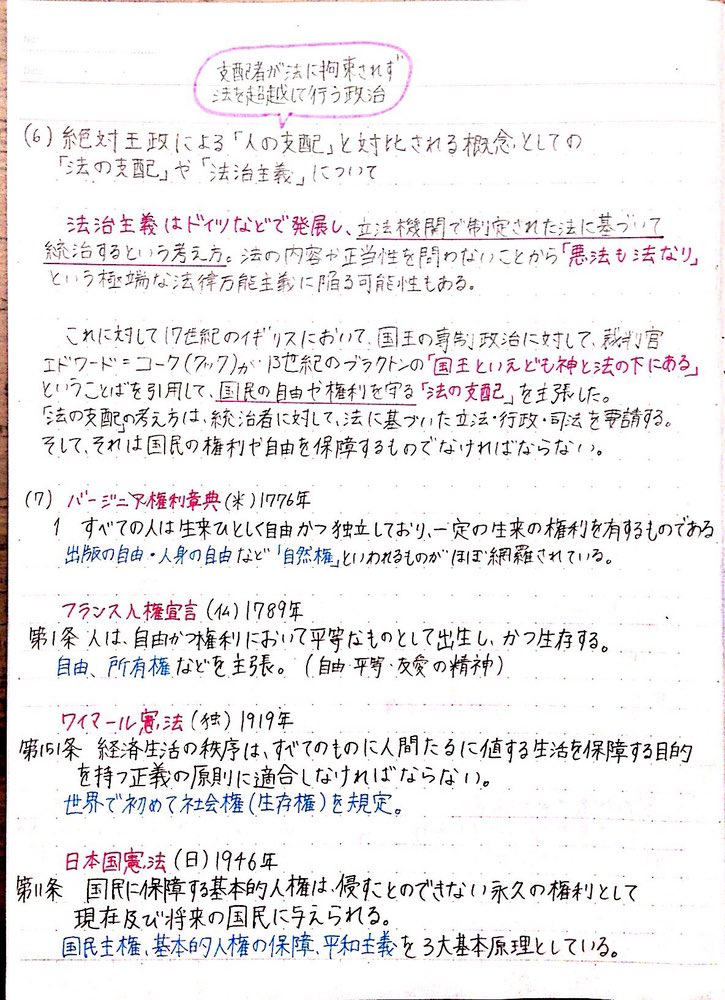 支配者が法に拘束されず
法を超越して行う政治
(6) 絶対王政による「人の支配」と対比される概念としての
「法の支配」や「法治主義」について
法治主義はドイツなどで発展し、立法機関で制定された法に基づいて
統治するという考え方。法の内容や正当性を問わないことから「悪法も法なり」
という極端な法律万能主義に陥る可能性もある。
これに対して17世紀のイギリスにおいて、国王の専制政治に対して、裁判官
エドワード=コーク(クック)が、13世紀のブラクトンの「国王といえども神と法の下にある」
ということばを引用して、国民の自由や権利を守る「法の支配」を主張した。
「法の支配」の考え方は、統治者に対して、法に基づいた立法・行政・司法を要請する。
そして、それは国民の権利や自由を保障するものでなければならない。
(7) バージニア権利章典(米)1776年
1 すべての人は生来ひとしく自由かつ独立しており、一定の生来の権利を有するものである
出版の自由・人身の自由など「自然権」といわれるものがほぼ網羅されている。
フランス人権宣言(仏)1789年
第1条 人は、自由かつ権利において平等なものとして出生し、かつ生存する。
自由、所有権などを主張。(自由・平等・友愛の精神)
ワイマール憲法(独)1919年
第151条 経済生活の秩序は、すべてのものに人間たるに値する生活を保障する目的
を持つ正義の原則に適合しなければならない。
世界で初めて社会権(生存権)を規定。
日本国憲法(日)1946年
第11条 国民に保障する基本的人権は、侵すことのできない永久の権利として
現在及び将来の国民に与えられる。
国民主権、基本的人権の保障、平和主義を3大基本原理としている。